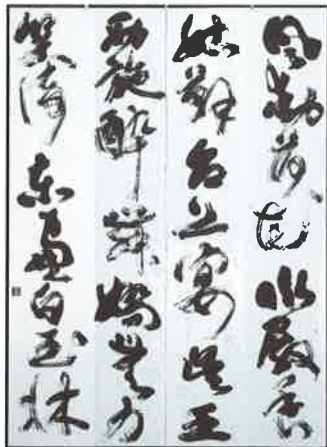 風動荷花水殿香
姑蘇台上宴吳王
西施醉舞嬌無力
笑倚東窗白玉牀